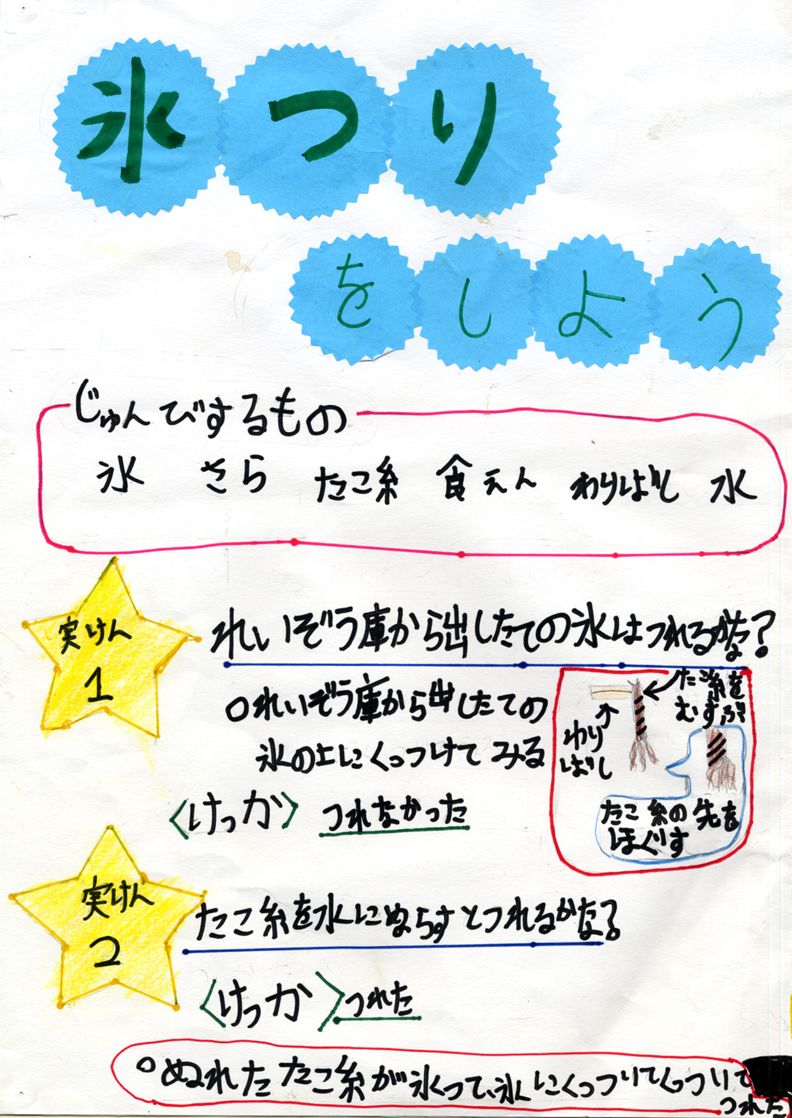 氷つり
をしよう
じゅんびするもの
氷 さら たこ糸 食えん わりばし 水
実けん
1
れいぞう庫から出したての氷はつれるかな?
○れいぞう庫から出したての
氷の上にくっつけてみる
たこ糸を
むすぶ
わり
ばし
たこ糸の先を
ほぐす
〈けっか〉 つれなかった
実けん
2
たこ糸を水にぬらすとつれるかな?
〈けっか〉つれた
○ぬれたたこ糸が氷って、氷にくっついてくっついて
つれた